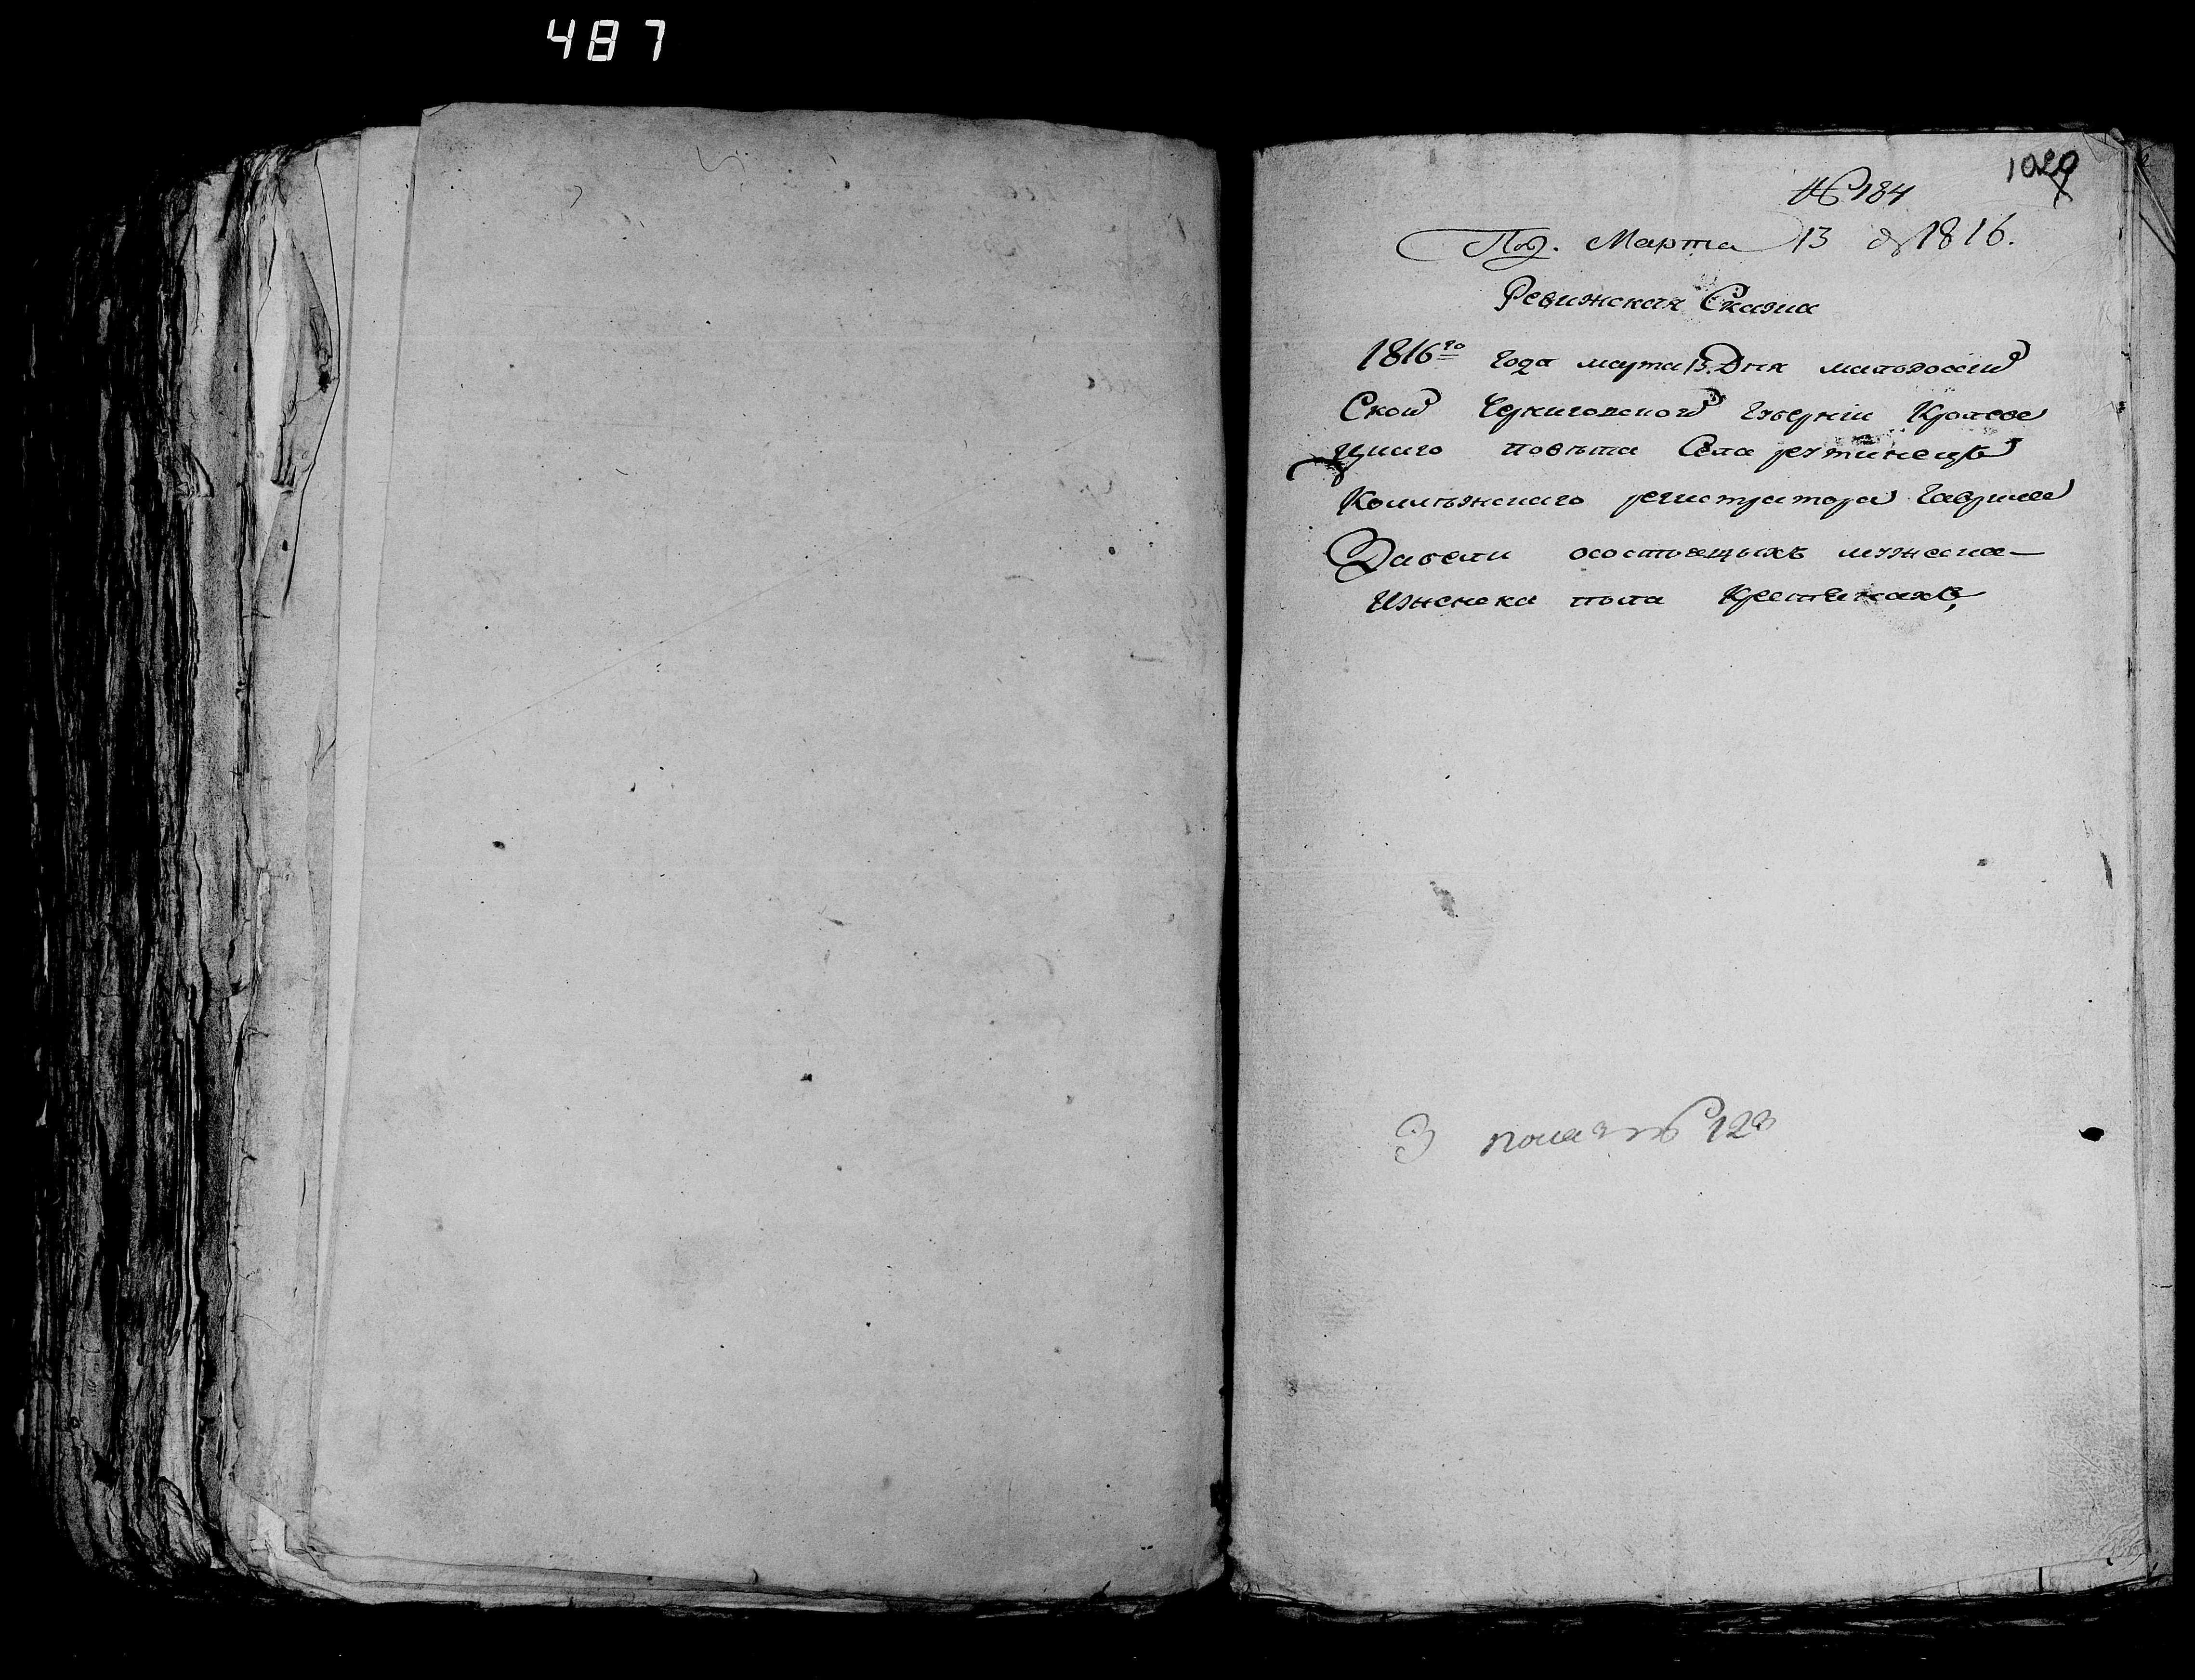 487
1020
№ 184
Под. Марта 13 д 1816.
Ревижская Сказка
1816го года марта 13. Дня малоросий
Ской Черниговской губернии Кролеве
цкаго повета Села рутинецъ
Колležскаго регистратора Гаврила
Давели осостоящихъ мужеска-
Иженска пола Крестянахъ,
3 № 123